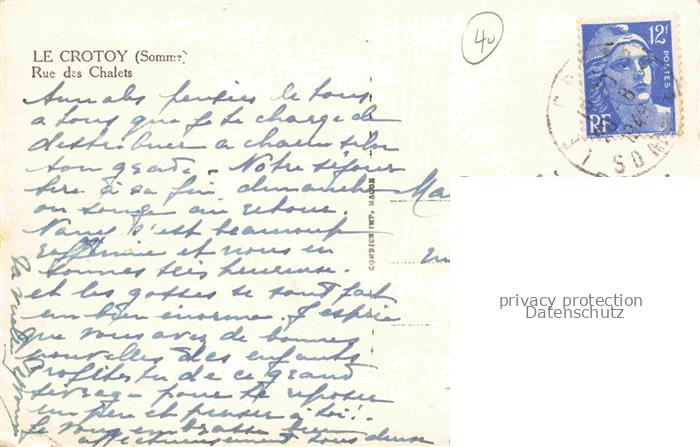 LE CROTOY (Somme)
Rue des Chalets
40
12F
POSTES
RF
SOMME
COMBIER IMP. MACON
pensées de tous
à tous que je te charge de
distribuer à chacun selon
son grade. Notre séjour
tire à sa fin, dimanche
on songe au retour.
s'est beaucoup
et nous en
sommes très heureuse.
et les gosses se sont fait
un bien énorme. J'espère
que vous avez de bonnes
nouvelles des enfants
Profites tu de ce grand
pour te reposer
un peu et penser à toi!
Je vous embrasse bien
affectueusement tous deux
privacy protection
Datenschutz